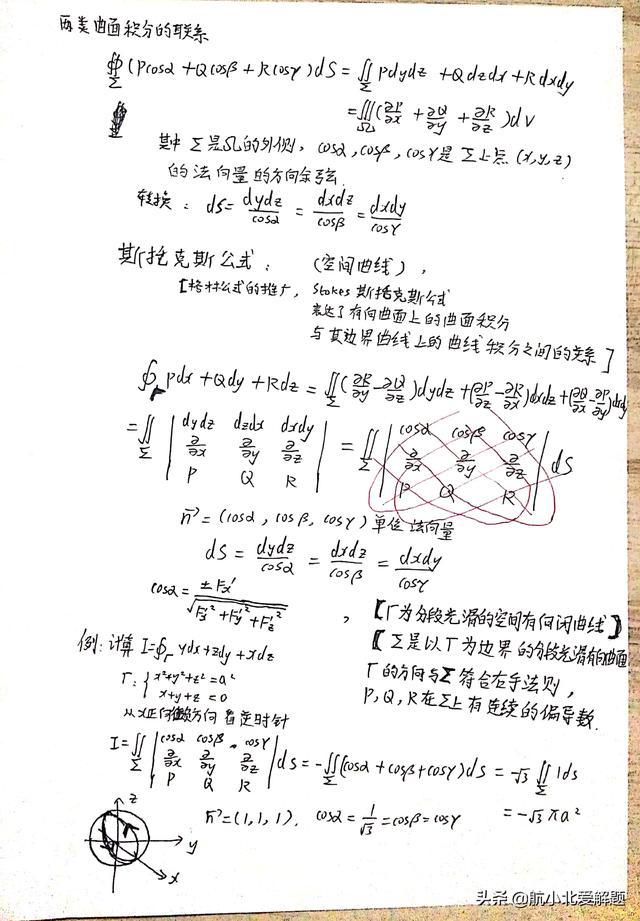 两类曲面积分的联系
∯_Σ (Pcosα + Qcosβ + Rcosγ)dS = ∬_Σ Pdydz + Qdzdx + Rdxdy
= ∭_Ω (∂P/∂x + ∂Q/∂y + ∂R/∂z) dv
其中 Σ 是 Ω 的外侧, cosα, cosβ, cosγ 是 Σ 上点 (x,y,z)
的法向量的方向余弦.
转换: dS = dydz/cosα = dxdz/cosβ = dxdy/cosγ
斯托克斯公式: (空间曲线),
【格林公式的推广, Stokes 斯托克斯公式
表达了有向曲面上的曲面积分
与其边界曲线上的曲线积分之间的关系】
∮_Γ Pdx + Qdy + Rdz = ∬_Σ (∂R/∂y - ∂Q/∂z)dydz + (∂P/∂z - ∂R/∂x)dxdz + (∂Q/∂x - ∂P/∂y)dxdy
= ∬_Σ | dydz dzdx dxdy | = ∬_Σ | cosα cosβ cosγ | dS
∂/∂x ∂/∂y ∂/∂z ∂/∂x ∂/∂y ∂/∂z
P Q R P Q R
n⃗ = (cosα, cosβ, cosγ) 单位法向量
dS = dydz/cosα = dxdz/cosβ = dxdy/cosγ
cosα = ±Fx'/√(Fx'² + Fy'² + Fz'²) ,
【Γ为分段光滑的空间有向闭曲线】
【Σ是以Γ为边界的分段光滑有向曲面
Γ的方向与Σ符合右手法则,
P, Q, R 在Σ上有连续的偏导数.
例: 计算 I = ∮_Γ ydx + zdy + xdz
Γ: { x²+y²+z² = a²
x+y+z = 0
从x正向 方向看逆时针
I = ∬_Σ | cosα cosβ cosγ | dS = -∬_Σ (cosα + cosβ + cosγ)dS = -√3 ∬_Σ 1dS
∂/∂x ∂/∂y ∂/∂z
P Q R
= -√3 πa²
n⃗ = (1, 1, 1), cosα = 1/√3 = cosβ = cosγ
z
y
x
头条 @航小北爱解题